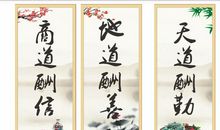 天道酬勤
地道酬善
商道酬信